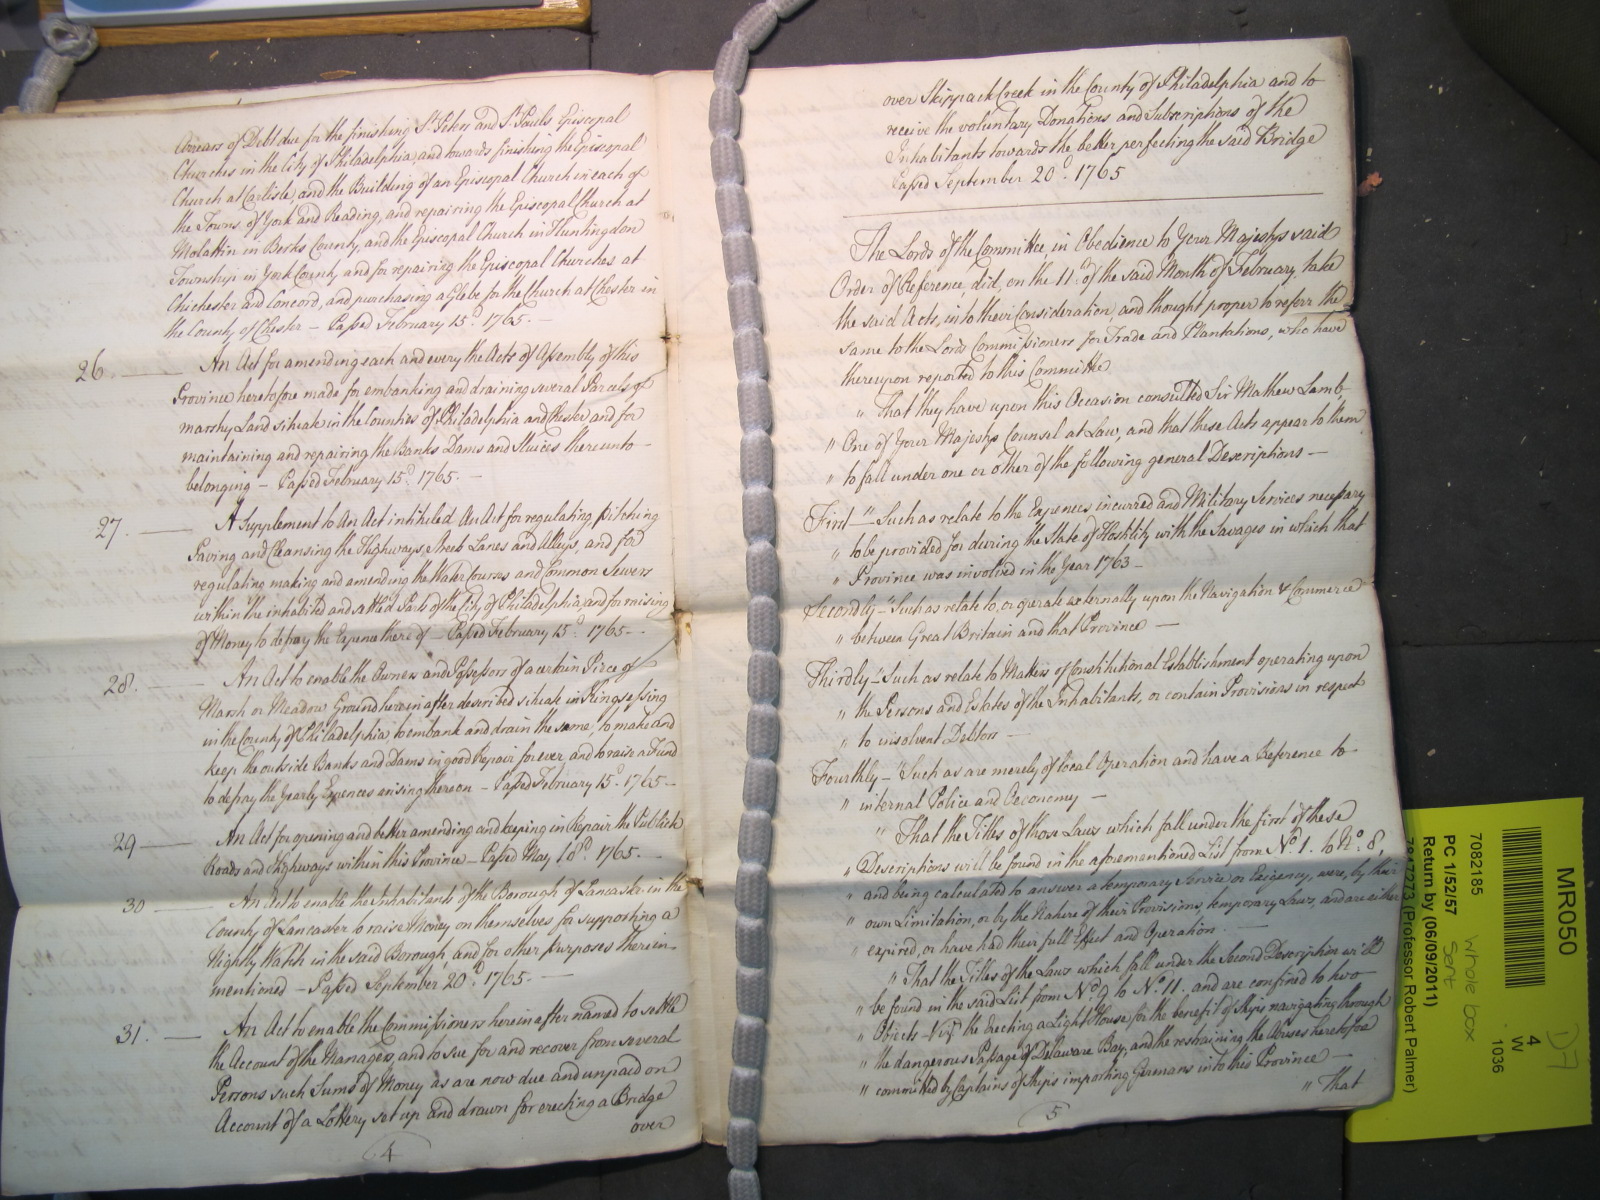 Arrears of Debt due for the finishing St. Peters and St. Pauls Episcopal
Churches in the City of Philadelphia, and towards finishing the Episcopal
Church at Carlisle, and the Building of an Episcopal Church in each of
the Towns of York and Reading, and repairing the Episcopal Church at
Molattin in Berks County, and the Episcopal Church in Huntingdon
Township in York County and for repairing the Episcopal Churches at
Chichester and Concord, and purchasing a Glebe for the Church at Chester in
the County of Chester – Passed February 15th. 1765. –
26. — An Act for amending each and every the Acts of Assembly of this
Province heretofore made for embanking and draining several Parcels of
marshy Land situate in the Counties of Philadelphia and Chester and for
maintaining and repairing the Banks Dams and Sluices thereunto –
belonging – Passed February 15th. 1765. –
27. — A Supplement to An Act intituled An Act for regulating pitching
Paving and Cleansing the Highways, Streets Lanes and Alleys, and for
regulating making and amending the Water Courses and Common Sewers
within the inhabited and settled Parts of the City of Philadelphia, and for raising
of Money to defray the Expence thereof – Passed February 15th. 1765 –
28. — An Act to enable the Owners and Possessors of a certain Piece of
Marsh or Meadow Ground herein after described situate in Kingsessing
in the County of Philadelphia to embank and drain the same, to make and
keep the outside Banks and Dams in good Repair for ever, and to raise a Fund
to defray the Yearly Expences arising thereon – Passed February 15th. 1765 –
29 — An Act for opening and better amending and keeping in Repair the Publick
Roads and Highways within this Province – Passed May 18th. 1765. –
30 — An Act to enable the Inhabitants of the Borough of Lancaster in the
County of Lancaster to raise Money on themselves for supporting a
Nightly Watch in the said Borough, and for other purposes therein
mentioned – Passed September 20th. 1765. –
31. — An Act to enable the Commissioners herein after named to settle
the Account of the Managers, and to sue for and recover from several
Persons such Sums of Money as are now due and unpaid on
Account of a Lottery set up and drawn for erecting a Bridge
over
4
over Skippack Creek in the County of Philadelphia and to
receive the voluntary Donations and Subscriptions of the
Inhabitants towards the better perfecting the said Bridge
Passed September 20th. 1765
The Lords of the Committee, in Obedience to Your Majestys said
Order of Reference, did, on the 11th. of the said Month of February, take
the said Acts, into their Consideration, and thought proper to referr the
same to the Lords Commissioners for Trade and Plantations, who have
thereupon reported to this Committee
" That they have upon this Occasion consulted Sir Mathew Lamb,
" One of Your Majestys Counsel at Law, and that these Acts appear to them
" to fall under one or other of the following general Descriptions —
First – " Such as relate to the Expences incurred and Military Services necessary
" to be provided for during the State of Hostility with the Savages in which that
" Province was involved in the Year 1763 –
Secondly – " Such as relate to, or operate externally upon the Navigation & Commerce
" between Great Britain and that Province —
Thirdly – " Such as relate to Matters of Constitutional Establishment operating upon
" the Persons and Estates of the Inhabitants, or contain Provisions in respect
" to insolvent Debtors —
Fourthly – " Such as are merely of local Operation and have a Reference to
" internal Police and Oeconomy —
" That the Titles of those Laws which fall under the first of these
" Descriptions will be found in the aforementioned List from No. 1. to No. 8,
" and being calculated to answer a temporary Service or Exigency, were, by their
" own Limitation, or by the Nature of their Provisions, temporary Laws, and are either
" expired, or have had their full Effect and Operation. —
" That the Titles of the Laws which fall under the Second Description will
" be found in the said List from No. 9 to No. 11. and are confined to two
" Objects – Vizt. the erecting a Light House for the benefit of Ships navigating through
" the dangerous Passage of Delaware Bay, and the restraining the Abuses heretofore
" committed by Captains of Ships importing Germans into this Province —
" That
5
MR050
D7
4
W
1036
7082185
whole box
PC 1/52/57
Sent
Return by (06/09/2011)
(Professor Robert Palmer)